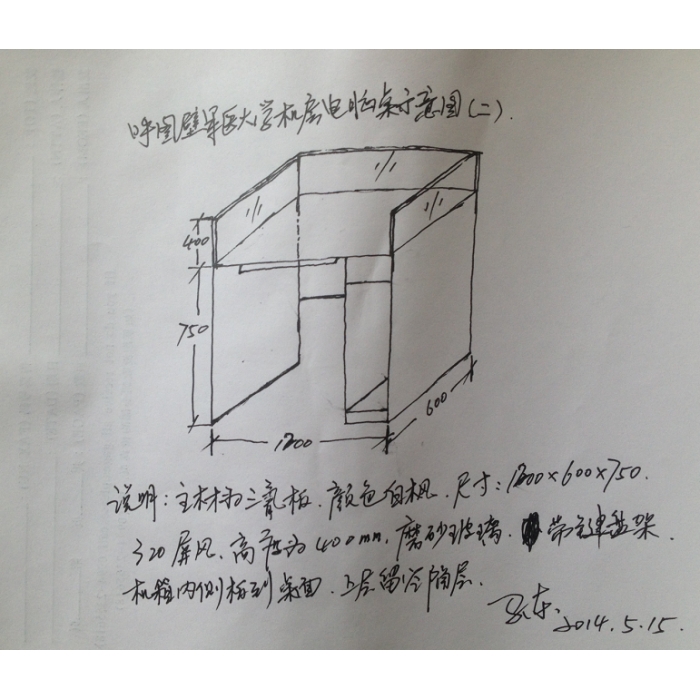 呼图壁军医大学机房电脑桌示意图(二).
400
750
1200
600
说明:主材为三氰板.颜色白枫.尺寸:1200×600×750.
320屏风.高度为400mm.磨砂玻璃.带主键盘架.
机箱内侧板到桌面.上层留空隔层.
2014.5.15.